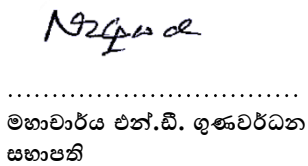 ....................................
මහාචාර්ය එන්.ඩී. ගුණවර්ධන
සභාපති